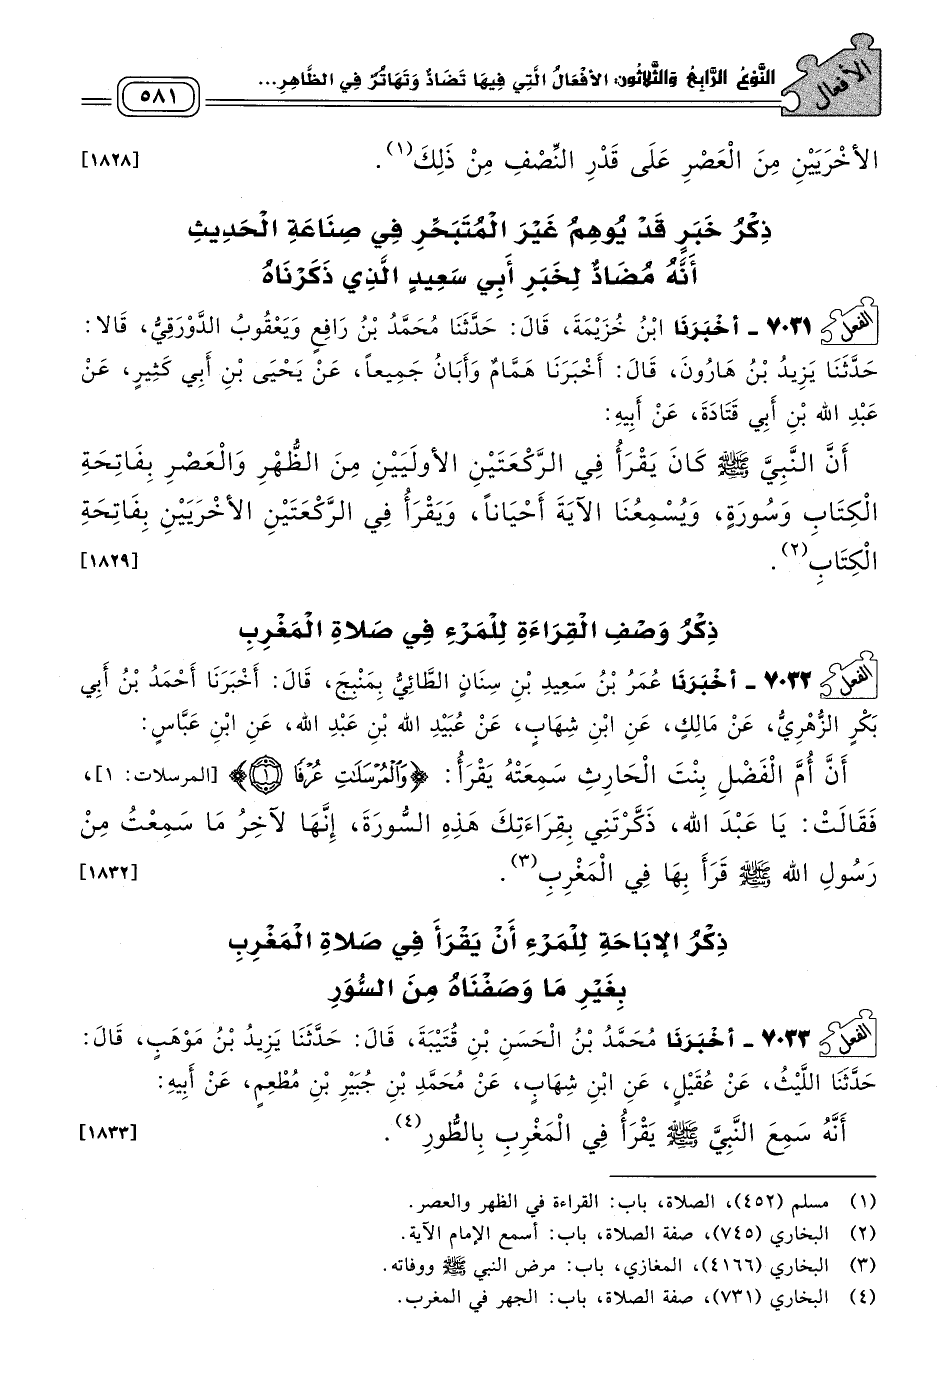 الأفعال
النَّوْعُ الرَّابِعُ وَالثَّلَاثُون: الأَفْعَالُ الَّتِي فِيهَا تَضَادٌّ وَتَهَاتُرٌ فِي الظَّاهِرِ...
٥٨١
الأُخْرَيَيْنِ مِنَ الْعَصْرِ عَلَى قَدْرِ النِّصْفِ مِنْ ذَلِكَ(١). [١٨٢٨]
ذِكْرُ خَبَرٍ قَدْ يُوهِمُ غَيْرَ الْمُتَبَحِّرِ فِي صِنَاعَةِ الْحَدِيثِ
أَنَّهُ مُضَادٌّ لِخَبَرِ أَبِي سَعِيدٍ الَّذِي ذَكَرْنَاهُ
الفعل ٧٠٣١ - أَخْبَرَنَا ابْنُ خُزَيْمَةَ، قَالَ: حَدَّثَنَا مُحَمَّدُ بْنُ رَافِعٍ وَيَعْقُوبُ الدَّوْرَقِيُّ، قَالا:
حَدَّثَنَا يَزِيدُ بْنُ هَارُونَ، قَالَ: أَخْبَرَنَا هَمَّامٌ وَأَبَانُ جَمِيعاً، عَنْ يَحْيَى بْنِ أَبِي كَثِيرٍ، عَنْ
عَبْدِ الله بْنِ أَبِي قَتَادَةَ، عَنْ أَبِيهِ:
أَنَّ النَّبِيَّ ﷺ كَانَ يَقْرَأُ فِي الرَّكْعَتَيْنِ الأُولَيَيْنِ مِنَ الظُّهْرِ وَالْعَصْرِ بِفَاتِحَةِ
الْكِتَابِ وَسُورَةٍ، وَيُسْمِعُنَا الآيَةَ أَحْيَاناً، وَيَقْرَأُ فِي الرَّكْعَتَيْنِ الأُخْرَيَيْنِ بِفَاتِحَةِ
الْكِتَابِ(٢). [١٨٢٩]
ذِكْرُ وَصْفِ الْقِرَاءَةِ لِلْمَرْءِ فِي صَلاةِ الْمَغْرِبِ
الفعل ٧٠٣٢ - أَخْبَرَنَا عُمَرُ بْنُ سَعِيدِ بْنِ سِنَانٍ الطَّائِيُّ بِمَنْبِجَ، قَالَ: أَخْبَرَنَا أَحْمَدُ بْنُ أَبِي
بَكْرٍ الزُّهْرِيُّ، عَنْ مَالِكٍ، عَنِ ابْنِ شِهَابٍ، عَنْ عُبَيْدِ الله بْنِ عَبْدِ الله، عَنِ ابْنِ عَبَّاسٍ:
أَنَّ أُمَّ الْفَضْلِ بِنْتَ الْحَارِثِ سَمِعَتْهُ يَقْرَأُ: ﴿وَالْمُرْسَلَتِ عُرْفًا ١﴾ [المرسلات: ١]،
فَقَالَتْ: يَا عَبْدَ الله، ذَكَّرْتَنِي بِقِرَاءَتِكَ هَذِهِ السُّورَةَ، إِنَّهَا لآخِرُ مَا سَمِعْتُ مِنْ
رَسُولِ الله ﷺ قَرَأَ بِهَا فِي الْمَغْرِبِ(٣). [١٨٣٢]
ذِكْرُ الإِبَاحَةِ لِلْمَرْءِ أَنْ يَقْرَأَ فِي صَلاةِ الْمَغْرِبِ
بِغَيْرِ مَا وَصَفْنَاهُ مِنَ السُّوَرِ
الفعل ٧٠٣٣ - أَخْبَرَنَا مُحَمَّدُ بْنُ الْحَسَنِ بْنِ قُتَيْبَةَ، قَالَ: حَدَّثَنَا يَزِيدُ بْنُ مَوْهَبٍ، قَالَ:
حَدَّثَنَا اللَّيْثُ، عَنْ عُقَيْلٍ، عَنِ ابْنِ شِهَابٍ، عَنْ مُحَمَّدِ بْنِ جُبَيْرِ بْنِ مُطْعِمٍ، عَنْ أَبِيهِ:
أَنَّهُ سَمِعَ النَّبِيَّ ﷺ يَقْرَأُ فِي الْمَغْرِبِ بِالطُّورِ(٤). [١٨٣٣]
(١) مسلم (٤٥٢)، الصلاة، باب: القراءة في الظهر والعصر.
(٢) البخاري (٧٤٥)، صفة الصلاة، باب: أسمع الإمام الآية.
(٣) البخاري (٤١٦٦)، المغازي، باب: مرض النبي ﷺ ووفاته.
(٤) البخاري (٧٣١)، صفة الصلاة، باب: الجهر في المغرب.